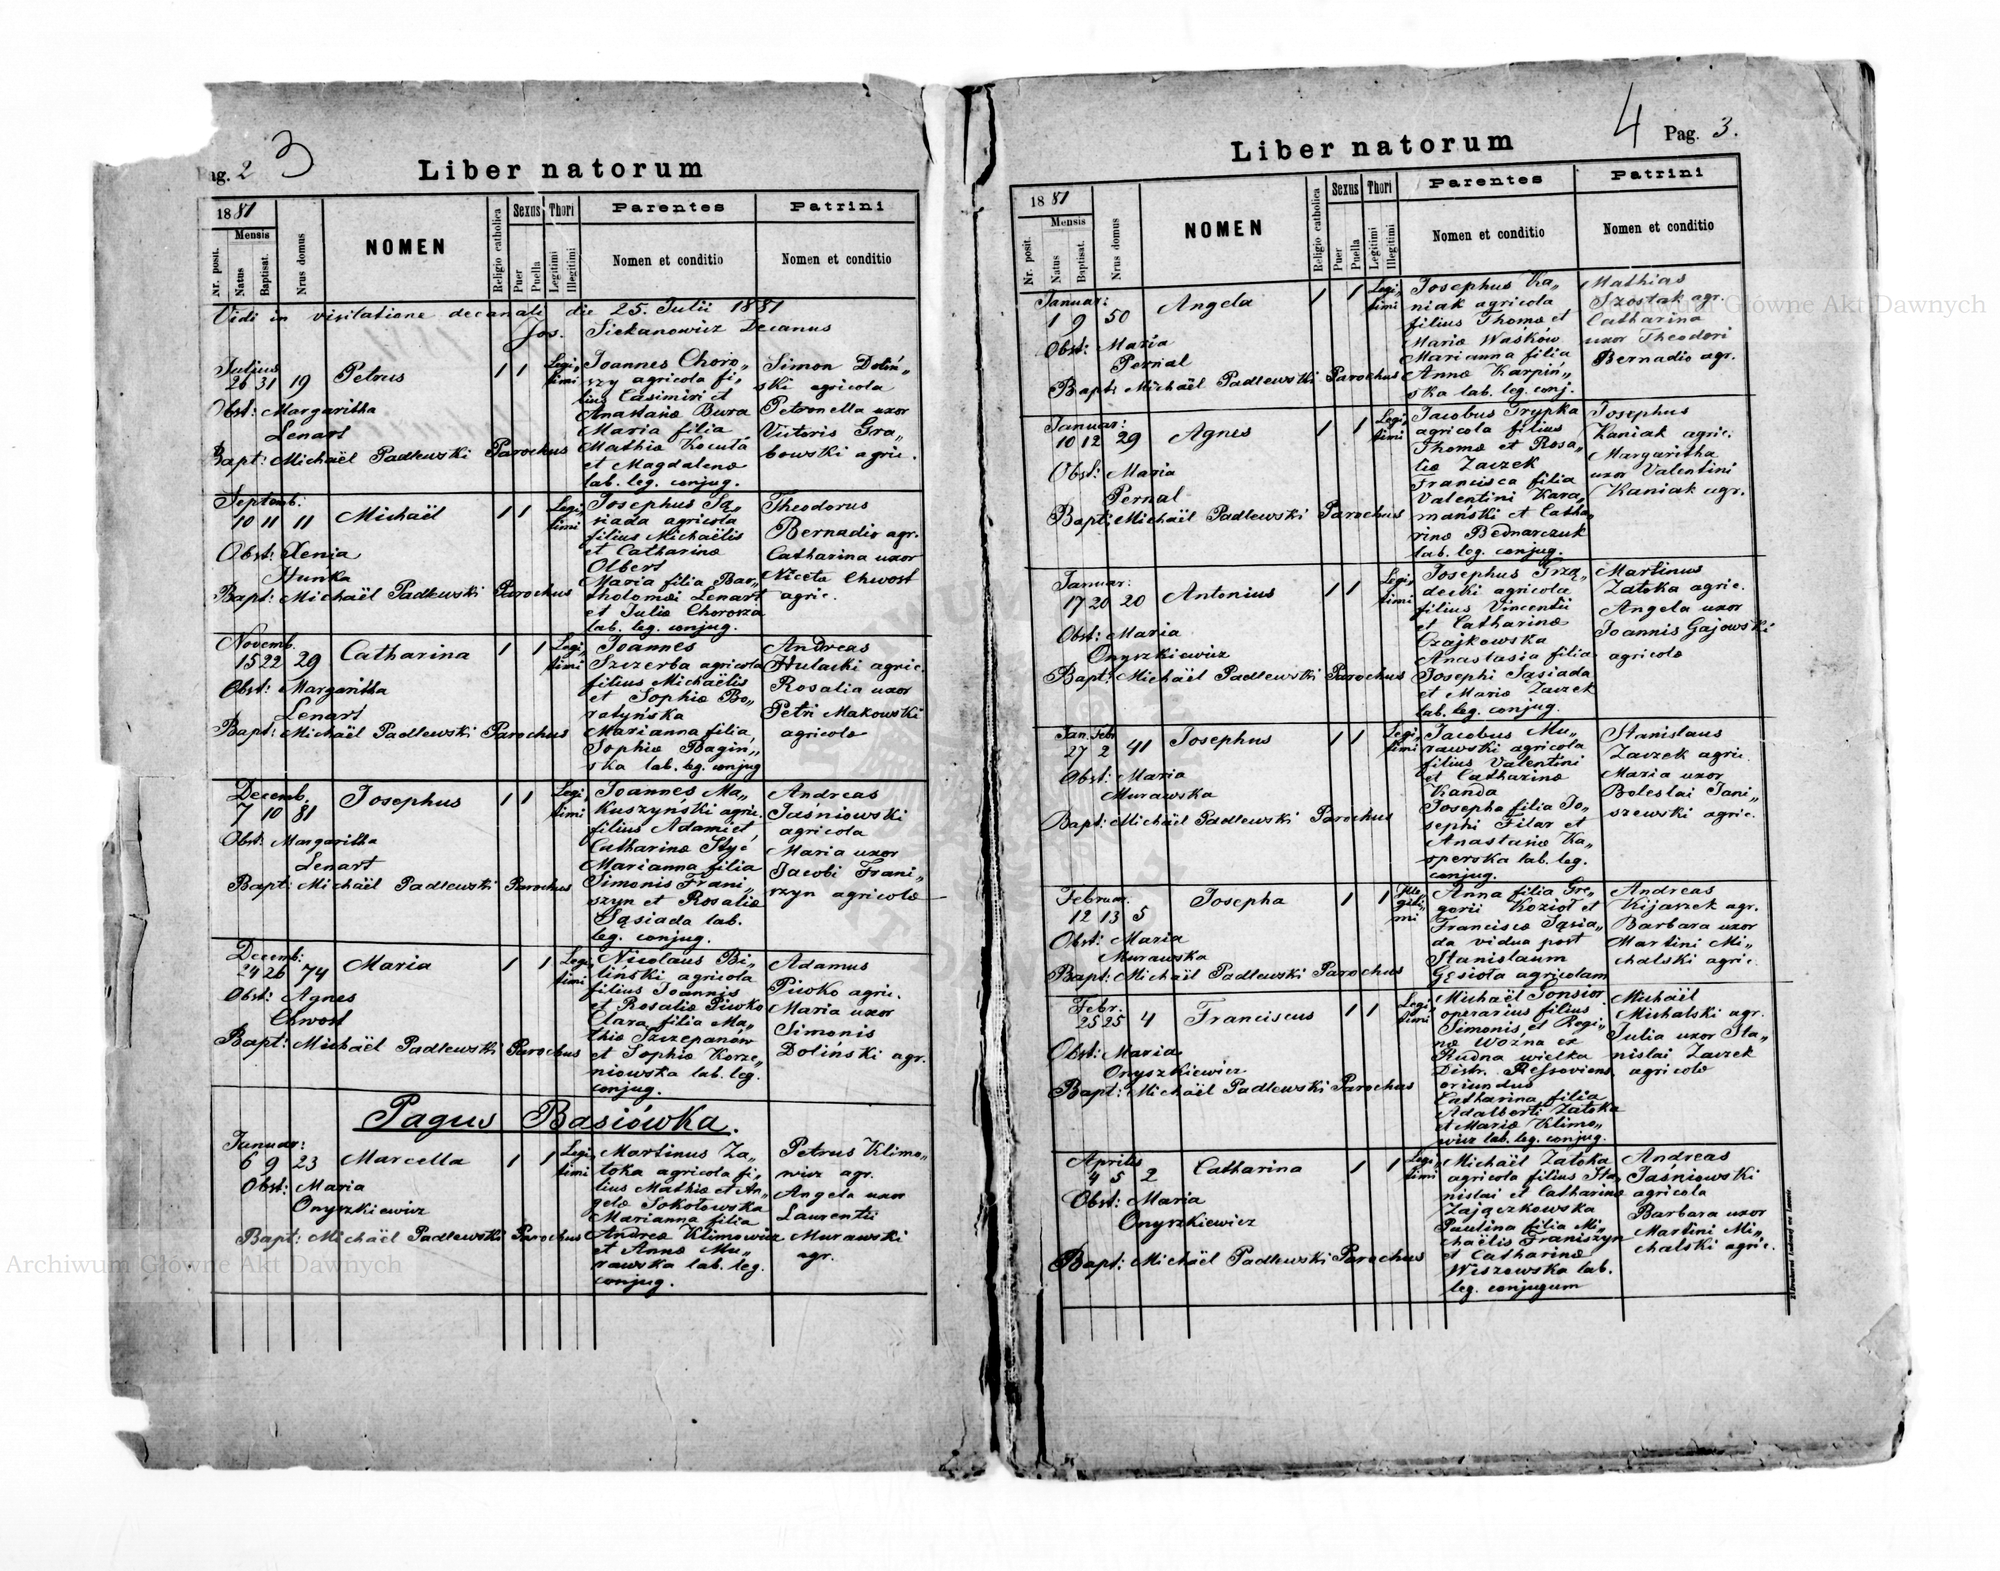 Pag. 2 3
Liber natorum
1881
Mensis
Nr. posit.
Natus
Baptisat.
Nrus domus
NOMEN
Religio catholica
Sexus
Puer
Puella
Thori
Legitimi
Illegitimi
Parentes
Nomen et conditio
Patrini
Nomen et conditio
Vidi in visitatione decanali die 25. Julii 1881
Jos. Siekanowicz Decanus
Julius
26 31 19 Petrus 1 1 Legi„
timi
Obst: Margaritha
Lenart
Bapt: Michaël Padlewski Parochus
Joannes Choro„
szy agricola fi„
lius Casimiri et
Anastasiæ Bura
Maria filia
Mathiæ Kocuta
et Magdalenæ
lab. leg. conjug.
Simon Doliń„
ski agricola
Petronella uxor
Victoris Gra„
bowski agric.
Septemb:
10 11 11 Michaël 1 1 Legi„
timi
Obst: Xenia
Huńka
Bapt: Michaël Padlewski Parochus
Josephus Są„
siada agricola
filius Michaëlis
et Catharinæ
Olbert
Maria filia Bar„
tholomæi Lenart
et Juliæ Chororza
lab. leg. conjug.
Theodorus
Bernadio agr.
Catharina uxor
Nicetæ Chwost
agric.
Novemb.
15 22 29 Catharina 1 1 Legi„
timi
Obst: Margaritha
Lenart
Bapt: Michaël Padlewski Parochus
Joannes
Szczerba agricola
filius Michaëlis
et Sophiæ Bo„
ratyńska
Marianna filia
Sophiæ Bagiń„
ska lab. leg. conjug
Andreas
Hulacki agric.
Rosalia uxor
Petri Makowski
agricolæ
Decemb.
7 10 81 Josephus 1 1 Legi„
timi
Obst: Margaritha
Lenart
Bapt: Michaël Padlewski Parochus
Joannes Ma„
kuszyński agric.
filius Adami et
Catharinæ Styć
Marianna filia
Simonis Frani„
szyn et Rosaliæ
Sąsiada lab.
leg. conjug.
Andreas
Jaśniowski
agricola
Maria uxor
Jacobi Frani„
rzyn agricolæ
Decemb:
24 26 74 Maria 1 1 Legi„
timi
Obst: Agnes
Chwost
Bapt: Michaël Padlewski Parochus
Nicolaus Bi„
liński agricola
filius Joannis
et Rosaliæ Piwko
Clara filia Ma„
thiæ Szczepanów
et Sophiæ Korze„
niowska lab. leg.
conjug.
Adamus
Piwko agric.
Maria uxor
Simonis
Doliński agr.
Pagus Basiówka.
Januar:
6 9 23 Marcella 1 1 Legi„
timi
Obst: Maria
Onyszkiewicz
Bapt: Michaël Padlewski Parochus
Martinus Za„
toka agricola fi„
lius Mathiæ et An„
gelæ Sokołowska
Marianna filia
Andreæ Klimowicz
et Annæ Mu„
rawska lab. leg.
conjug.
Petrus Klimo„
wicz agr.
Angela uxor
Laurentii
Murawski
agr.
4 Pag. 3.
Liber natorum
1881
Mensis
Nr. posit.
Natus
Baptisat.
Nrus domus
NOMEN
Religio catholica
Sexus
Puer
Puella
Thori
Legitimi
Illegitimi
Parentes
Nomen et conditio
Patrini
Nomen et conditio
Januar:
1 9 50 Angela 1 1 Legi„
timi
Obst: Maria
Pernal
Bapt: Michaël Padlewski Parochus
Josephus Ka„
niak agricola
filius Thomæ et
Mariæ Waśków
Marianna filia
Annæ Karpiń„
ska lab. leg. conj.
Mathias
Szostak agr.
Catharina
uxor Theodori
Bernadio agr.
Januar:
10 12 29 Agnes 1 1 Legi„
timi
Obst: Maria
Pernal
Bapt: Michaël Padlewski Parochus
Jacobus Trypka
agricola filius
Thomæ et Rosa„
liæ Zaczek
Francisca filia
Valentini Kara„
mański et Catha„
rinæ Bednarczuk
lab. leg. conjug.
Josephus
Kaniak agric.
Margaritha
uxor Valentini
Kaniak agr.
Januar:
17 20 20 Antonius 1 1 Legi„
timi
Obst: Maria
Onyszkiewicz
Bapt: Michaël Padlewski Parochus
Josephus Trzą„
decki agricola
filius Vincentii
et Catharinæ
Czajkowska
Anastasia filia
Josephi Sąsiada
et Mariæ Zaczek
lab. leg. conjug.
Martinus
Zatoka agric.
Angela uxor
Joannis Gajowski
agricolæ
Jan. Febr
27 2 41 Josephus 1 1 Legi„
timi
Obst: Maria
Murawska
Bapt: Michaël Padlewski Parochus
Jacobus Mu„
rawski agricola
filius Valentini
et Catharinæ
Kanda
Josepha filia Jo„
sephi Filar et
Anastasiæ Ka„
sperska lab. leg.
conjug.
Stanislaus
Zaczek agric.
Maria uxor
Boleslai Jani„
szewski agric.
Februar.
12 13 5 Josepha 1 1 Ille„
giti„
mi
Obst: Maria
Murawska
Bapt: Michaël Padlewski Parochus
Anna filia Gre„
gorii Kozioł et
Franciscæ Sąsia„
da vidua post
Stanislaum
Gęsiola agricolam
Andreas
Kijaszek agr.
Barbara uxor
Martini Mi„
chalski agric.
Febr.
25 25 4 Franciscus 1 1 Legi„
timi
Obst: Maria
Onyszkiewicz
Bapt: Michaël Padlewski Parochus
Michaël Gonsior
operarius filius
Simonis et Regi„
næ Wozna ex
Rudna wielka
Distr. Ressoviens.
oriundus
Catharina filia
Adalberti Zatoka
et Mariæ Klimo„
wicz lab. leg. conjug.
Michaël
Michalski agr.
Julia uxor Sta„
nislai Zaczek
agricolæ
Aprilis
4 5 2 Catharina 1 1 Legi„
timi
Obst: Maria
Onyszkiewicz
Bapt: Michaël Padlewski Parochus
Michaël Zatoka
agricola filius Sta„
nislai et Catharinæ
Zajączkowska
Paulina filia Mi„
chaëlis Franiszyn
et Catharinæ
Wiszowska lab.
leg. conjugum
Andreas
Jaśniowski
agricola
Barbara uxor
Martini Mi„
chalski agric.
Archiwum Główne Akt Dawnych
Archiwum Główne Akt Dawnych